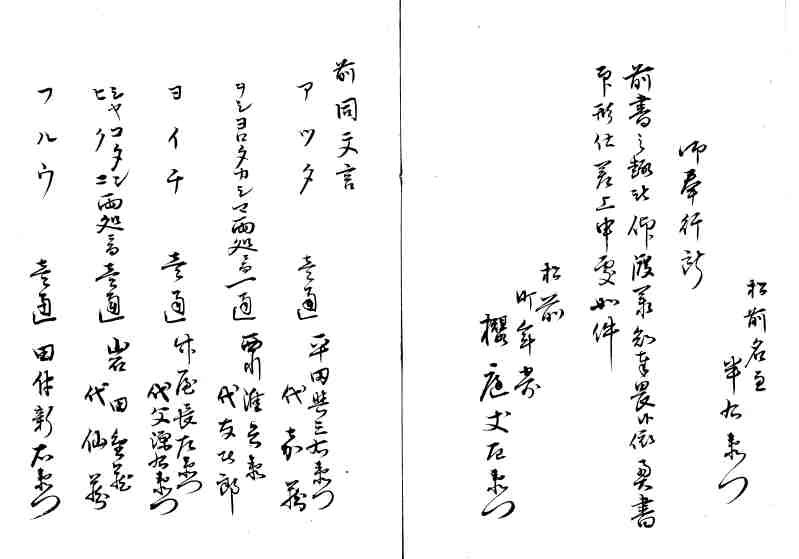 松前名主
半右衛門
御奉行所
前書之趣被仰渡承知奉畏候依奥書
印形仕差上申処如件
松前
町年寄
桜庭丈左衛門
前同文言
アツタ 壱通 平田与三右衛門
代 嘉蔵
ヲシヨロタカシマ両処ニ而一通
代友次郎
ヨイチ 壱通 竹屋長左衛門
代父源右衛門
シヤコタン
ヒクニ 両処ニ而壱通 岩田金蔵
代仙蔵
フルウ 壱通 田付新右衛門